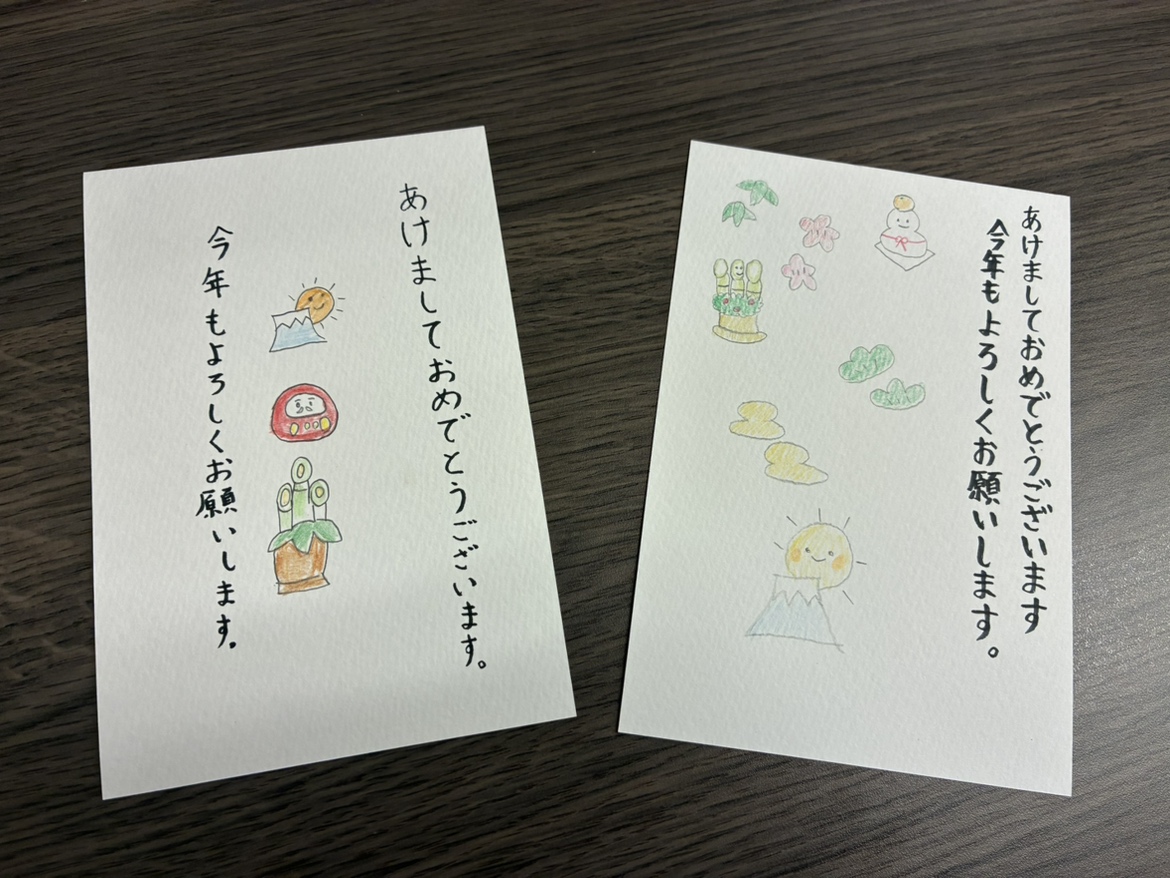 あけましておめでとうございます。
今年もよろしくお願いします。
あけましておめでとうございます
今年もよろしくお願いします。